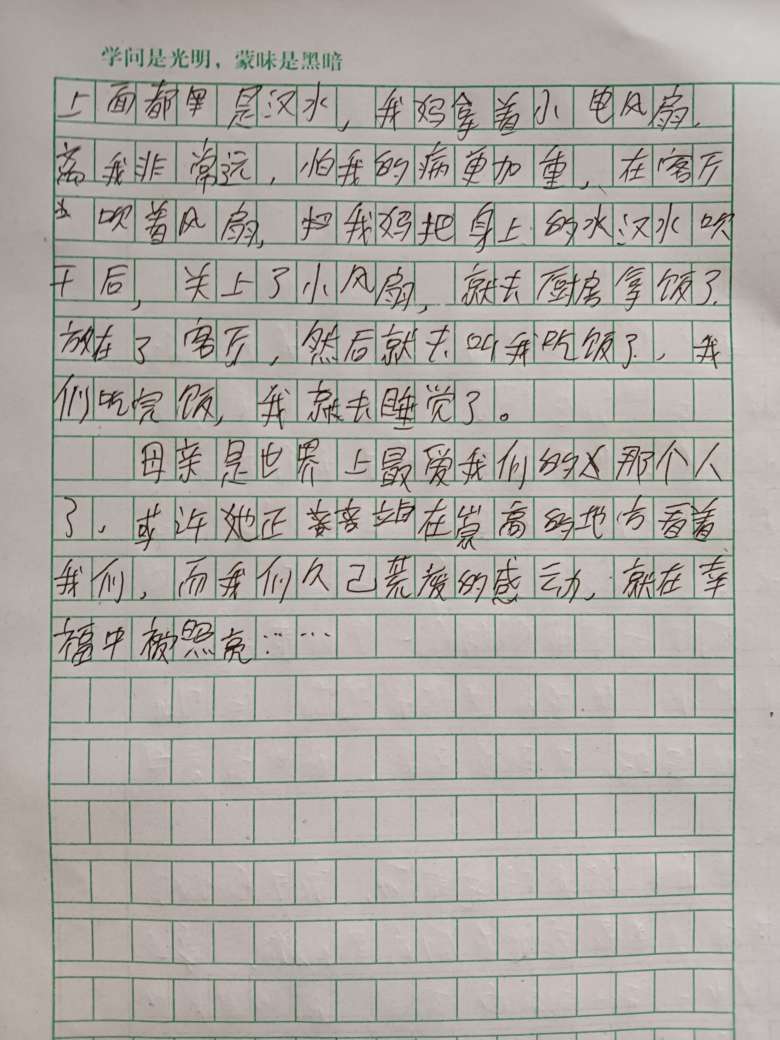 学问是光明，蒙昧是黑暗
上面都里是汉水，我妈拿着小电风扇，
离我非常远，怕我的病更加重，在客厅
吹着风扇，把我妈把身上的水汉水吹
干后，关上了小风扇，就去厨房拿饭了，
放在了客厅，然后就去叫我吃饭了，我
们吃完饭，我就去睡觉了。
母亲是世界上最爱我们的那个人
了，或许她正站在崇高的地方看着
我们，而我们久已荒废的感动，就在幸
福中被照亮……